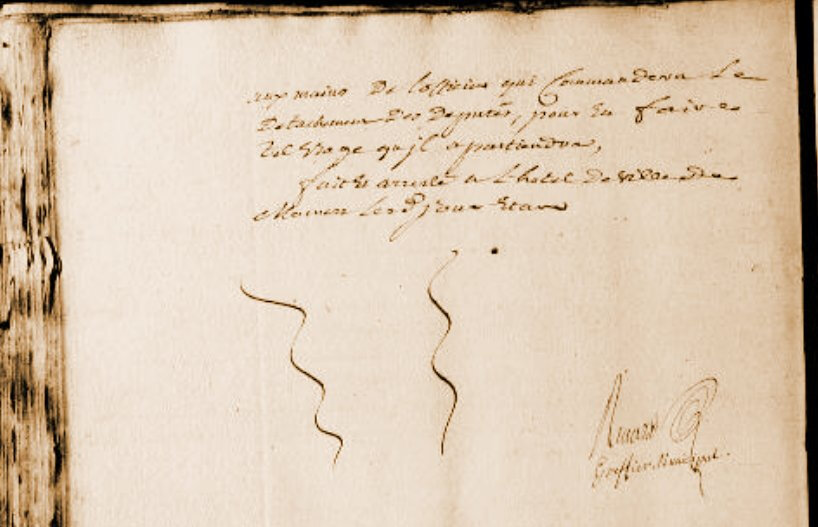 aux mains De lofficier qui Commandera Le
Detachement Des Deputés, pour En faire
tel Usage qu'jl apartiendra,
fait Et arresté a Lhotel de ville de
Les d. jour Et an
Greffier Municipal.